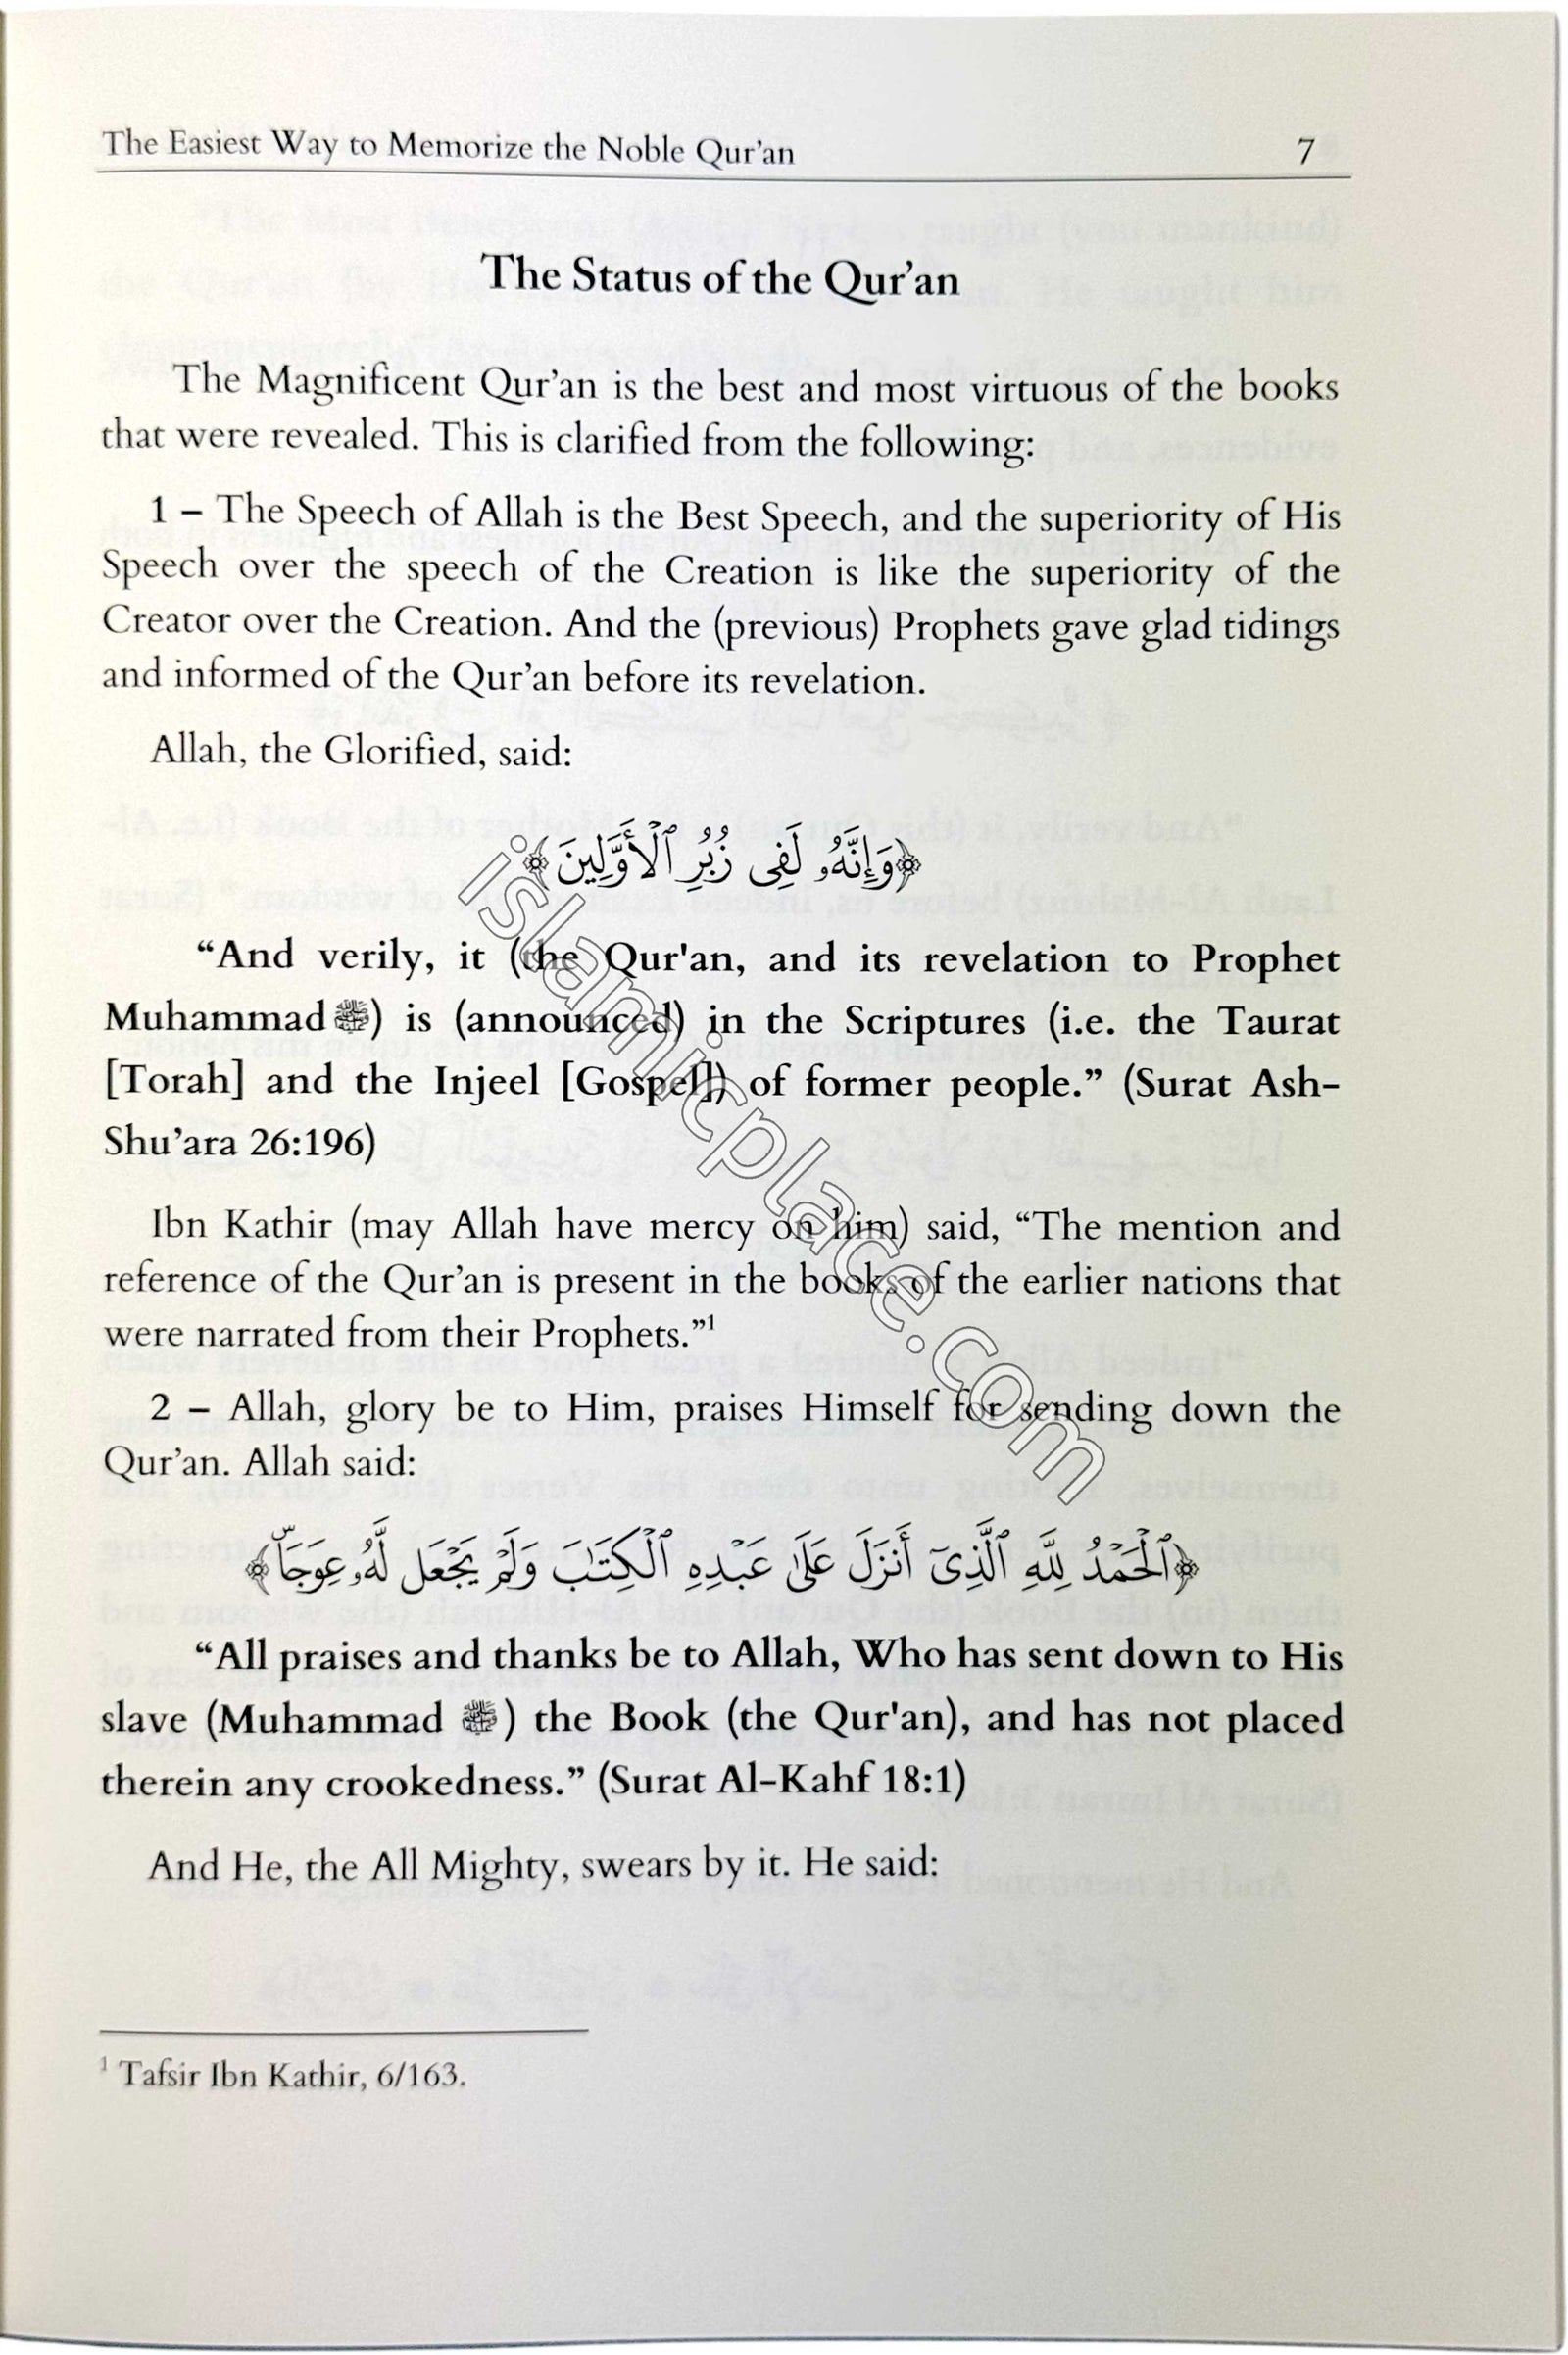 The Easiest Way to Memorize the Noble Qur’an 7
The Status of the Qur’an
The Magnificent Qur’an is the best and most virtuous of the books
that were revealed. This is clarified from the following:
1 – The Speech of Allah is the Best Speech, and the superiority of His
Speech over the speech of the Creation is like the superiority of the
Creator over the Creation. And the (previous) Prophets gave glad tidings
and informed of the Qur’an before its revelation.
Allah, the Glorified, said:
﴿وَإِنَّهُۥ لَفِى زُبُرِ ٱلْأَوَّلِينَ﴾
“And verily, it (the Qur'an, and its revelation to Prophet
Muhammad ﷺ) is (announced) in the Scriptures (i.e. the Taurat
[Torah] and the Injeel [Gospel]) of former people.” (Surat Ash-
Shu’ara 26:196)
Ibn Kathir (may Allah have mercy on him) said, “The mention and
reference of the Qur’an is present in the books of the earlier nations that
were narrated from their Prophets.”¹
2 – Allah, glory be to Him, praises Himself for sending down the
Qur’an. Allah said:
﴿ٱلْحَمْدُ لِلَّهِ ٱلَّذِىٓ أَنزَلَ عَلَىٰ عَبْدِهِ ٱلْكِتَٰبَ وَلَمْ يَجْعَل لَّهُۥ عِوَجَاۜ﴾
“All praises and thanks be to Allah, Who has sent down to His
slave (Muhammad ﷺ) the Book (the Qur'an), and has not placed
therein any crookedness.” (Surat Al-Kahf 18:1)
And He, the All Mighty, swears by it. He said:
¹ Tafsir Ibn Kathir, 6/163.
islamicplace.com